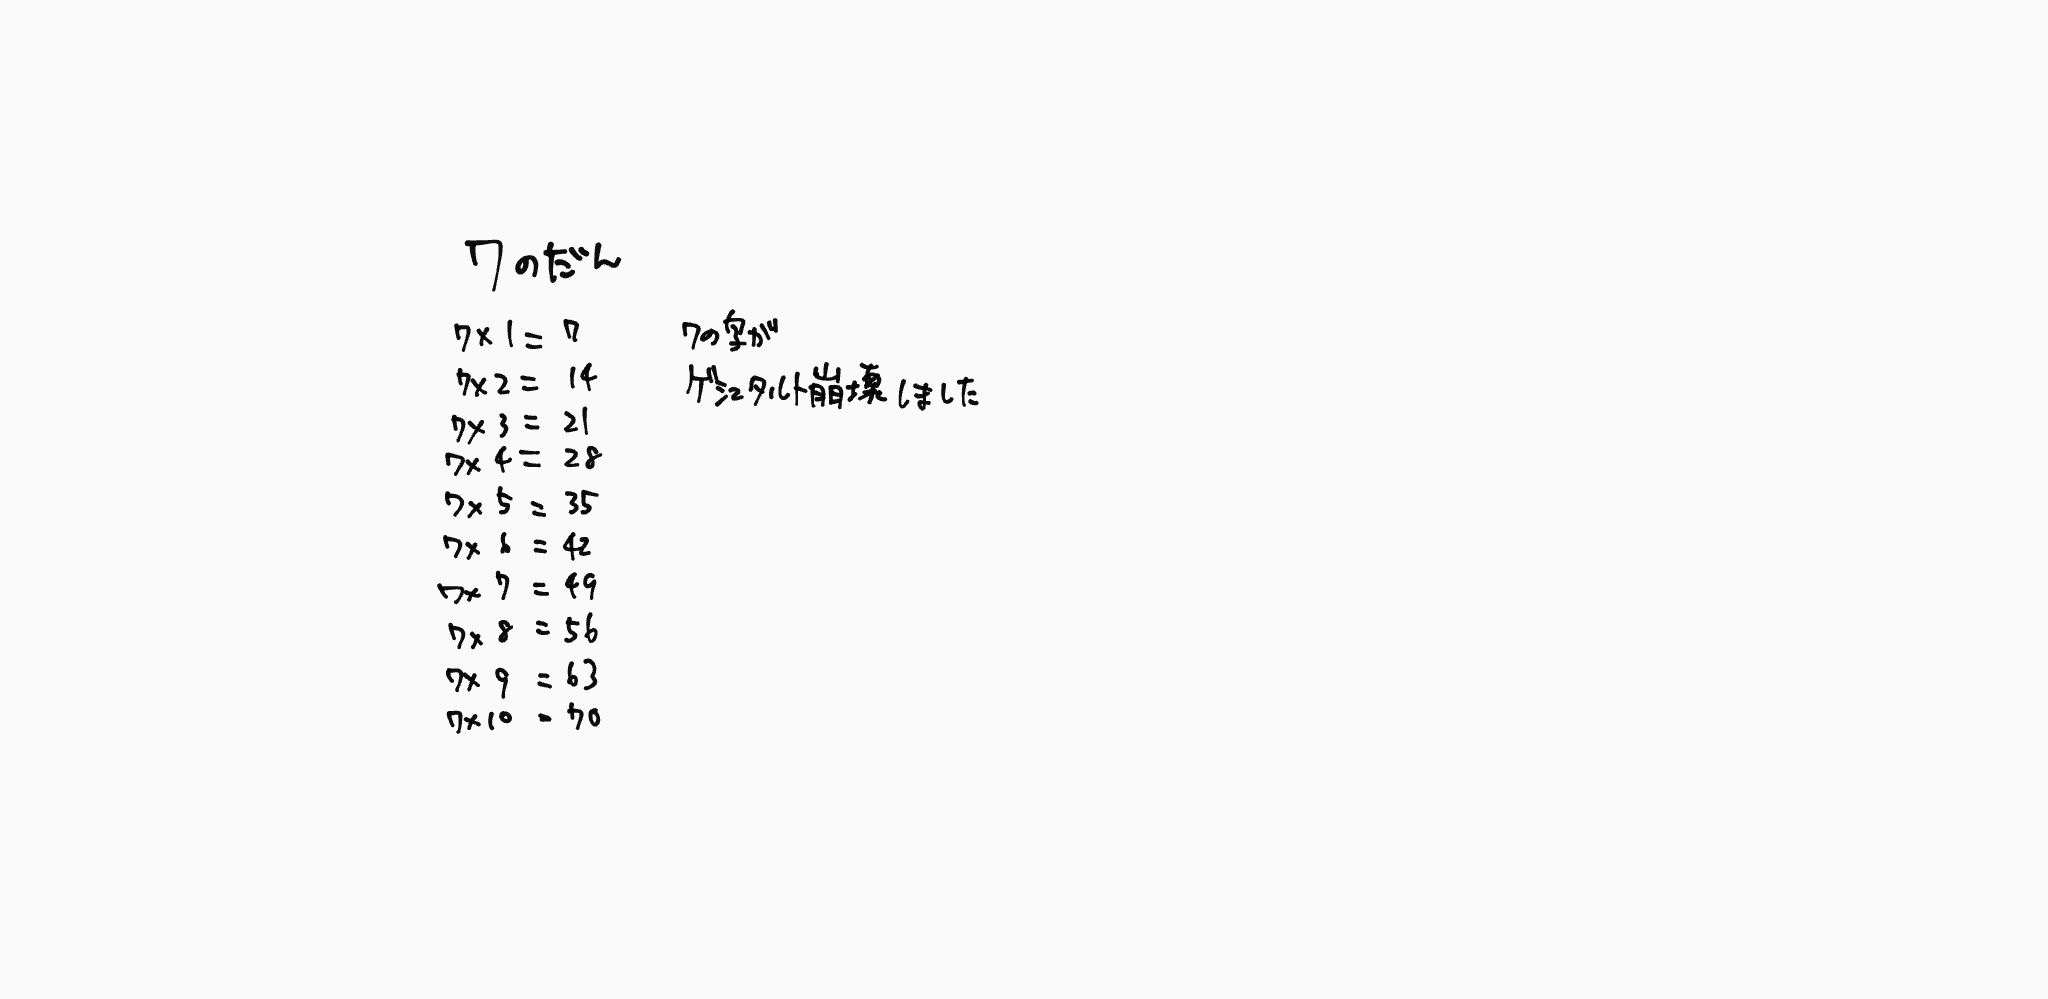 7のだん
7×1=7
7×2=14
7×3=21
7×4=28
7×5=35
7×6=42
7×7=49
7×8=56
7×9=63
7×10=70
7の字が
ゲシュタルト崩壊しました